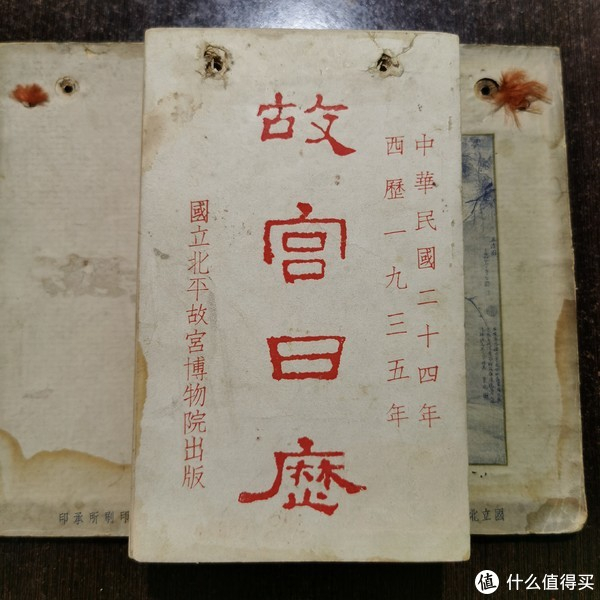 中華民國二十四年
西歷一九三五年
故宮日歷
國立北平故宮博物院出版
印刷所承印
國立北
值 什么值得买